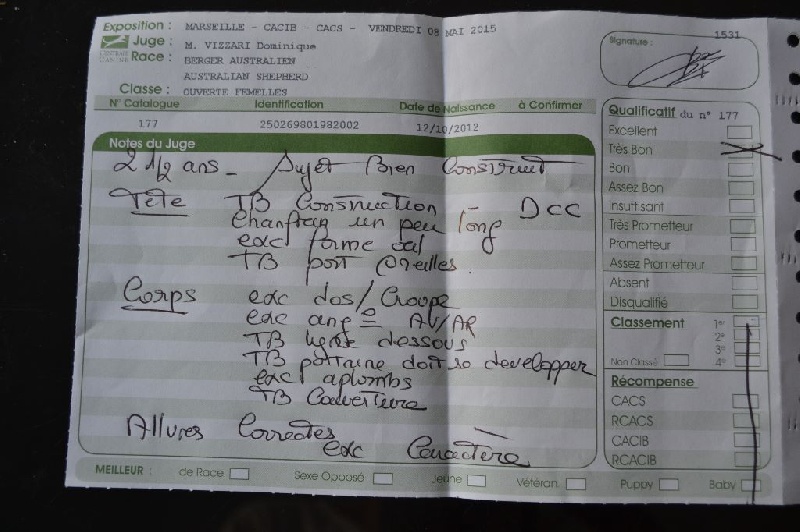 Exposition : MARSEILLE - CACIB - CACS - VENDREDI 08 MAI 2015
Juge : M. VIZZARI Dominique
Race : BERGER AUSTRALIEN
AUSTRALIAN SHEPHERD
Classe : OUVERTE FEMELLES
Signature : 1531
N° Catalogue Identification Date de Naissance à Confirmer
177 250269801982002 12/10/2012
Notes du Juge
2 1/2 ans - Sujet Bien Construit
Tête TB Construction - Dcc
Chanfrein un peu long
exc forme
TB port Oreilles.
Corps exc dos/Croupe
exc ang AV/AR
TB ligne dessous
TB poitraine doit se developper
exc aplombs
TB Couverture
Allures Correctes
exc Caractère
Qualificatif du n° 177
Excellent
Très Bon
Bon
Assez Bon
Insuffisant
Très Prometteur
Prometteur
Assez Prometteur
Absent
Disqualifié
Classement 1er
2e
3e
Non Classé 4e
Récompense
CACS
RCACS
CACIB
RCACIB
MEILLEUR : de Race Sexe Opposé Jeune Vétéran Puppy Baby